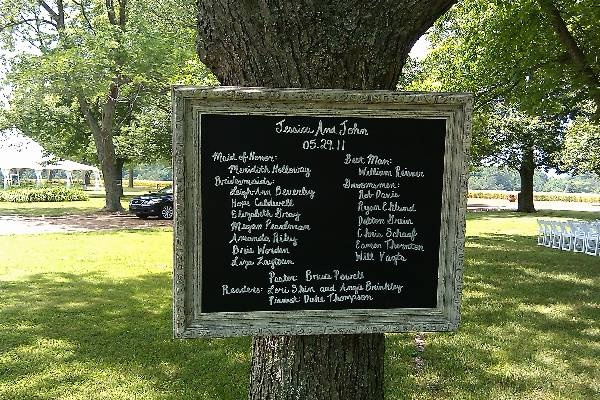 Jessica And John
05.29.11
Maid of Honor:
Meridith Holloway
Bridesmaids:
Leigh-Ann Beverley
Hope Caldwell
Elizabeth Gray
Megan Pearlman
Amanda Riley
Brie Worden
Liza
Best Man:
William Reisner
Groomsmen:
Rob Davis
Ryan Eklund
Dalton Grein
Chris Schaaf
Eamon Thornton
Will
Pastor: Bruce Powell
Readers: Lori Shin and Angie Brinkley
Pianist: Duke Thompson